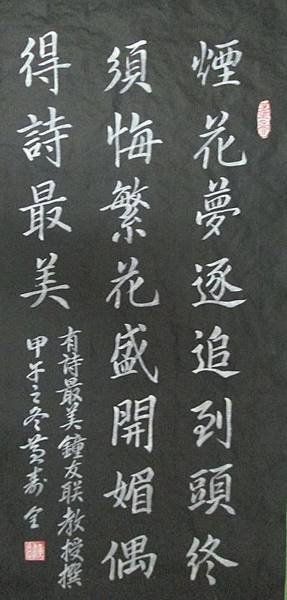 煙花夢逐追到頭終
須悔繁花盛開媚偶
得詩最美
有詩最美鐘友联教授撰
甲午之冬黃壽全